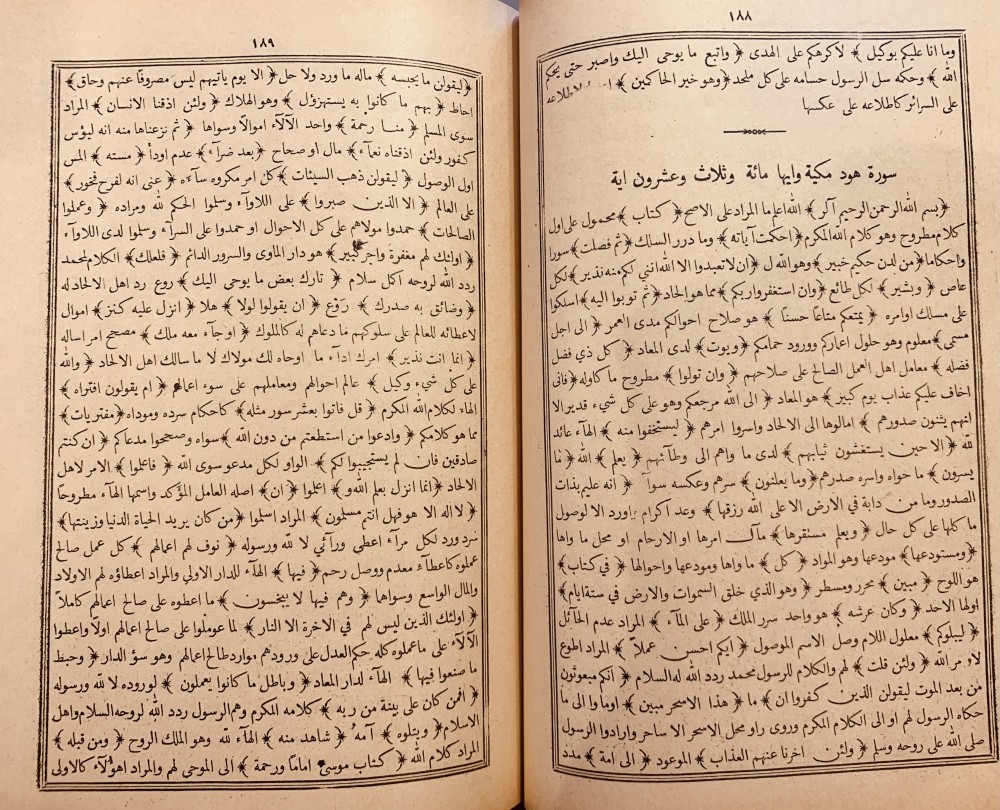 ١٨٨
وما انا عليكم بوكيل ﴾ لاكرهكم على الهدى ﴿ واتبع ما يوحى اليك واصبر حتى يحكم
الله ﴾ وحكمه سل الرسول حسامه على كل ملحد ﴿ وهو خير الحاكمين ﴾ لاطلاعه
على السرائر كاطلاعه على عكسها
سورة هود مكية وايها مائة وثلاث وعشرون اية
﴿ بسم الله الرحمن الرحيم آلر ﴾ الله اعلم ما المراد على الاصح ﴿ كتاب ﴾ محمول على اول
كلام مطروح وهو كلام الله المكرم ﴿ احكمت آياته ﴾ وما درر السالك ﴿ ثم فصلت ﴾ سورا
واحكاما ﴿ من لدن حكيم خبير ﴾ وهو الله ل ﴿ ان لا تعبدوا الا الله انني لكم منه نذير ﴾ لكل
عاص ﴿ وبشير ﴾ لكل طائع ﴿ وان استغفروا ربكم ﴾ مما هو الحاد ﴿ ثم توبوا اليه ﴾ اسلكوا
على مسالك اوامره ﴿ يمتعكم متاعا حسنا ﴾ هو صلاح احوالكم مدى العمر ﴿ الى اجل
مسمى ﴾ معلوم وهو حلول اعماركم وورود حمامكم ﴿ ويوت ﴾ لدى المعاد ﴿ كل ذي فضل
فضله ﴾ معامل اهل العمل الصالح على صلاحهم ﴿ وان تولوا ﴾ مطروح ما كاوله ﴿ فانى
اخاف عليكم عذاب يوم كبير ﴾ هو المعاد ﴿ الى الله مرجعكم وهو على كل شيء قدير الا
انهم يثنون صدورهم ﴾ امالوها الى الالحاد واسروا امرهم ﴿ ليستخفوا منه ﴾ الهاء عائد
لله ﴿ الا حين يستغشون ثيابهم ﴾ لدى ما واهم الى وطآئهم ﴿ يعلم ﴾ الله ﴿ ما
يسرون ﴾ ما حواه واسره صدرهم ﴿ وما يعلنون ﴾ سرهم وعكسه سوا ﴿ انه عليم بذات
الصدور وما من دابة في الارض الا على الله رزقها ﴾ وعد اكرام الا لوصول
ما كلها على كل حال ﴿ ويعلم مستقرها ﴾ مآل امرها او الارحام او محل ما واها
﴿ ومستودعها ﴾ مودعها وهو المواد ﴿ كل ﴾ ما واها ومودعها واحوالها ﴿ في كتاب ﴾
هو اللوح ﴿ مبين ﴾ محرر ومسطر ﴿ وهو الذي خلق السموات والارض في ستة ايام ﴾
اولها الاحد ﴿ وكان عرشه ﴾ هو واحد سرر الملك ﴿ على المآء ﴾ المراد عدم الحآئل
﴿ ليبلوكم ﴾ معلول اللام وصل الاسم الموصول ﴿ ايكم احسن عملا ﴾ المراد اطوع
لاومر الله ﴿ ولئن قلت ﴾ لهم والكلام للرسول محمد ردد الله له السلام ﴿ انكم مبعوثون
من بعد الموت ليقولن الذين كفروا ان ﴾ ما ﴿ هذا الا سحر مبين ﴾ اوما وا الى ما
حكاه الرسول لهم او الى الكلام المكرم وروى راو محل الاسحر الا ساحر وارادوا الرسول
صلى الله على روحه وسلم ﴿ ولئن اخرنا عنهم العذاب ﴾ الموعود ﴿ الى امة ﴾ مدد
١٨٩
﴿ ليقولن ما يحبسه ﴾ ماله ما ورد ولا حل ﴿ الا يوم يأتيهم ليس مصروفا عنهم وحاق ﴾
احاط ﴿ بهم ما كانوا به يستهزؤل ﴾ وهو الهلاك ﴿ ولئن اذقنا الانسان ﴾ المراد
سوى المسلم ﴿ منا رحمة ﴾ واحد الآلاء اموالا وسواها ﴿ ثم نزعناها منه انه ليؤس
كفور ولئن اذقناه نعمآء ﴾ مال او صحاح ﴿ بعد ضراء ﴾ عدم اودأ ﴿ مسته ﴾ المس
اول الوصول ﴿ ليقولن ذهب السيئات ﴾ كل امر مكروه سآءه ﴿ عنى انه لفرح فخور ﴾
على العالم ﴿ الا الذين صبروا ﴾ على اللاوآء وسلموا الحكم لله ومراده ﴿ وعملوا
الصالحات ﴾ حمدوا مولاهم على كل الاحوال او حمدوا على السرآء وسلموا لدى اللاوآء
﴿ اولئك لهم مغفرة واجر كبير ﴾ هو دار الماوى والسرور الدائم ﴿ فلعلك ﴾ الكلام لمحمد
ردد الله لروحه اكل سلام ﴿ تارك بعض ما يوحى اليك ﴾ روع رد اهل الالحاد له
﴿ وضائق به صدرك ﴾ روع ﴿ ان يقولوا لولا ﴾ هلا ﴿ انزل عليه كنز ﴾ اموال
لاعطائه للعالم على سلوكهم ما دعاهم له كالملوك ﴿ او جآء معه ملك ﴾ مصحح امر ارساله
﴿ انما انت نذير ﴾ امرك ادآء ما اوحاه لك مولاك لا ما سالك اهل الالحاد ﴿ والله
على كل شيء وكيل ﴾ عالم احوالهم ومعاملهم على سوء اعمالهم ﴿ ام يقولون افتراه ﴾
الهاء لكلام الله المكرم ﴿ قل فاتوا بعشر سور مثله ﴾ كاحكام سرده وموداه ﴿ مفتريات ﴾
مما هو كلامكم ﴿ وادعوا من استطعتم من دون الله ﴾ سواه وصححوا مدعاكم ﴿ ان كنتم
صادقين فان لم يستجيبوا لكم ﴾ الواو لكل مدعو سوى الله ﴿ فاعلموا ﴾ الامر لاهل
الالحاد ﴿ انما انزل بعلم الله و ﴾ اعلموا ﴿ ان ﴾ اصله العامل المؤكد واسمها الهآء مطروحا
﴿ لا اله الا هو فهل انتم مسلمون ﴾ المراد اسلموا ﴿ من كان يريد الحياة الدنيا وزينتها ﴾
سرد ورد لكل مرآء اعطى ورآئي لا لله ورسوله ﴿ نوف لهم اعمالهم ﴾ كل عمل صالح
عملوه كاعطآء معدم ووصل رحم ﴿ فيها ﴾ الهآء للدار الاولى والمراد اعطاؤه لهم الاولاد
والمال الواسع وسواها ﴿ وهم فيها لا يبخسون ﴾ ما اعطوه على صالح اعمالهم كاملا
﴿ اولئك الذين ليس لهم في الاخرة الا النار ﴾ لما عوملوا على صالح اعمالهم اولا واعطوا
الآلآء على ما عملوه كله حكم العدل على ورودهم موارد طالح اعمالهم وهو سؤ الدار ﴿ وحبط
ما صنعوا فيها ﴾ الهآء لدار المعاد ﴿ وباطل ما كانوا يعملون ﴾ لوروده لا لله ورسوله
﴿ افمن كان على بينة من ربه ﴾ كلامه المكرم وهم الرسول ردد الله لروحه السلام واهل
الاسلام ﴿ ويتلوه ﴾ آمه ﴿ شاهد منه ﴾ الهآء لله وهو الملك الروح ﴿ ومن قبله ﴾
المراد كلام الله ﴿ كتاب موسى اماما ورحمة ﴾ الى الموحى لهم والمراد اهؤلآء كالاولى